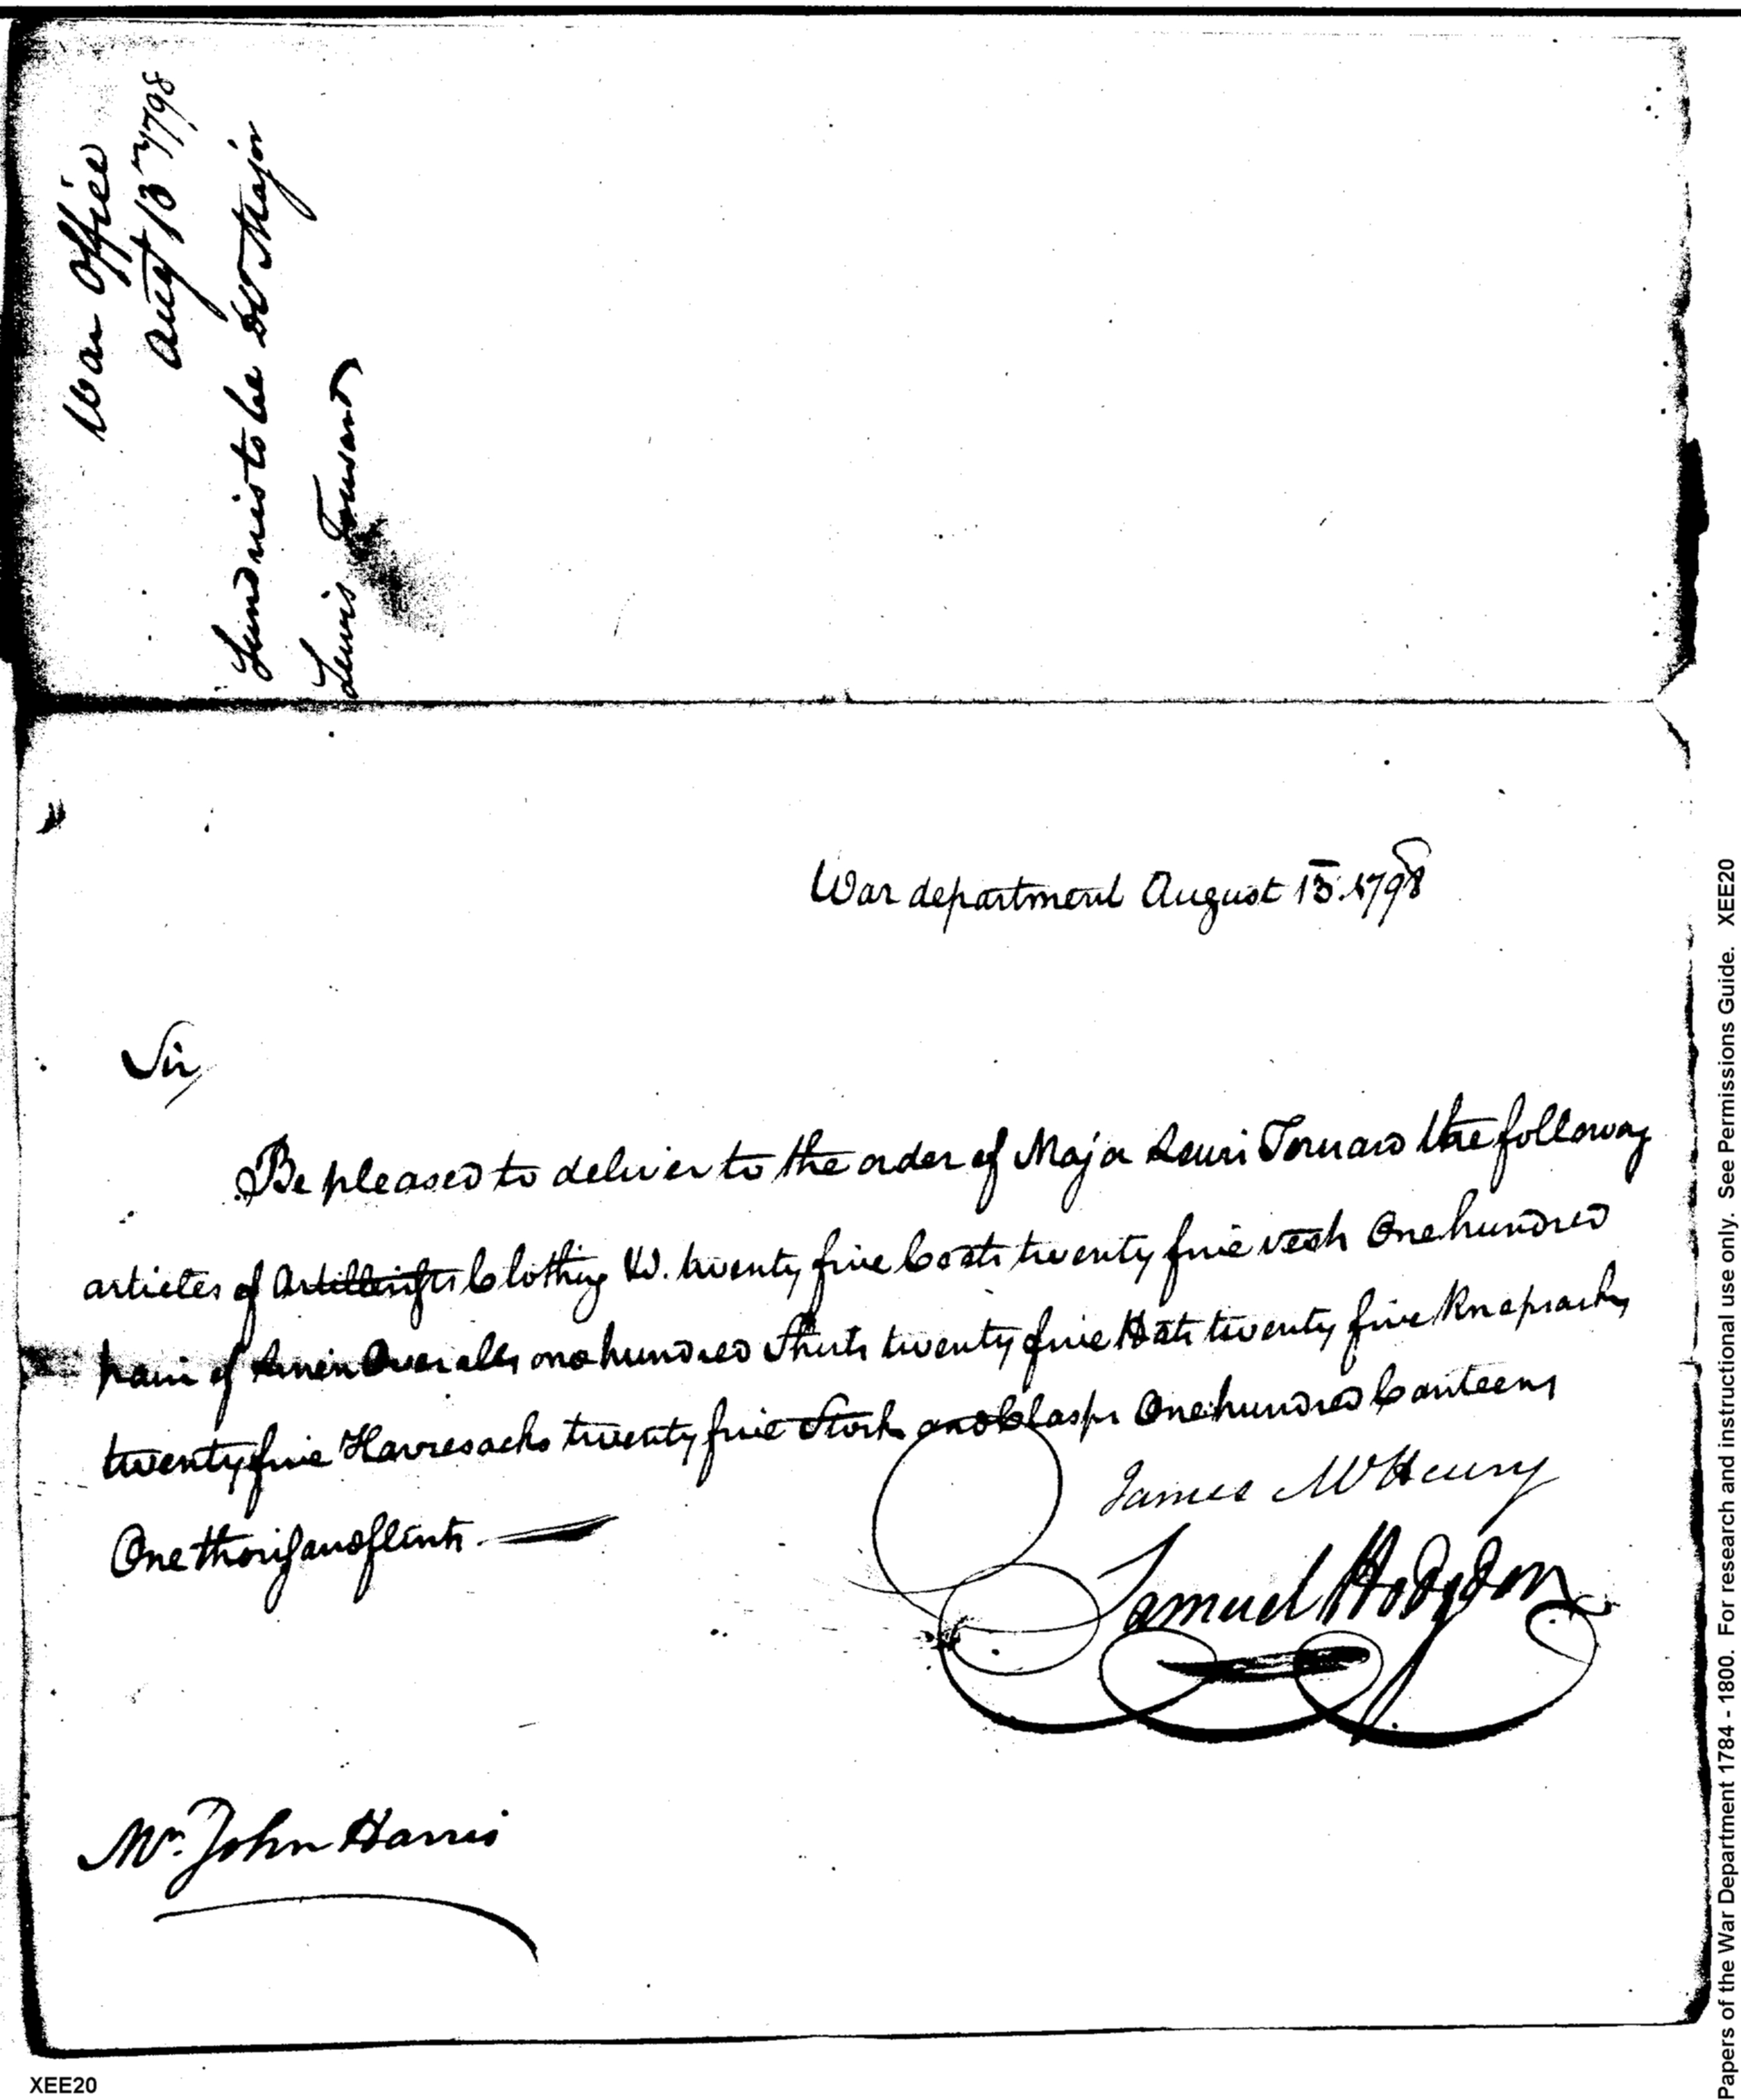 War Office
Augt 13th 1798
Sundries to be dd Major
Lewis Tousard
War department August 13. 1798
Sir
Be pleased to deliver to the order of Major Lewis Tousard the following
articles of Artillerists Clothing Vz. twenty five Coats twenty five vests One hundred
pair of Linen Overalls one hundred Shirts twenty five Hats twenty five Knapsacks
twenty five Havresacks twenty five Stocks and Clasps One hundred Canteens
One thousand flints.
James McHenry
Samuel Hodgdon
Mr. John Harris
Papers of the War Department 1784 - 1800. For research and instructional use only. See Permissions Guide. XEE20
XEE20